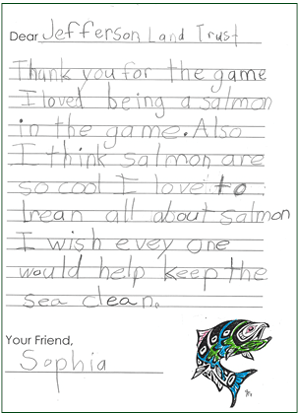 Dear Jefferson Land Trust
Thank you for the game
I loved being a salmon
in the game. Also
I think salmon are
so cool I love to
lrean all about salmon
I wish evey one
would help keep the
sea clean.
Your Friend,
Sophia